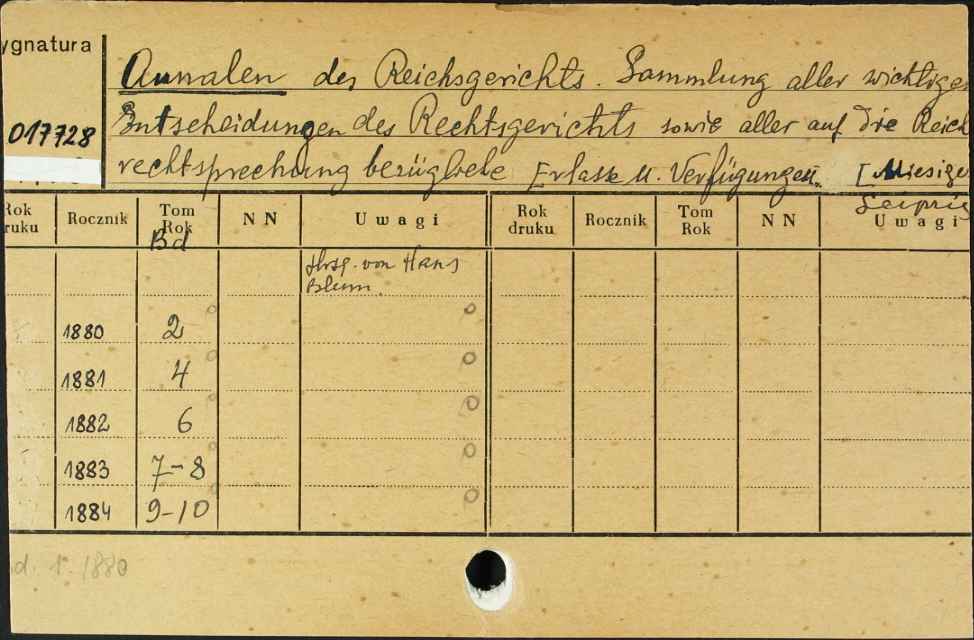 ygnatura
Annalen des Reichsgerichts. Sammlung aller wichtigen
017728
Entscheidungen des Rechtsgerichts sowie aller auf die Reich
rechtsprechung bezügbele Erlasse u. Verfügungen. [Miesige
Leipzig
Rok druku Rocznik Tom Rok NN Uwagi Rok druku Rocznik Tom Rok NN Uwagi
Bd
Hrsg. von Hans
Blum.
1880 2
1881 4
1882 6
1883 7-8
1884 9-10
d. 1. 1880